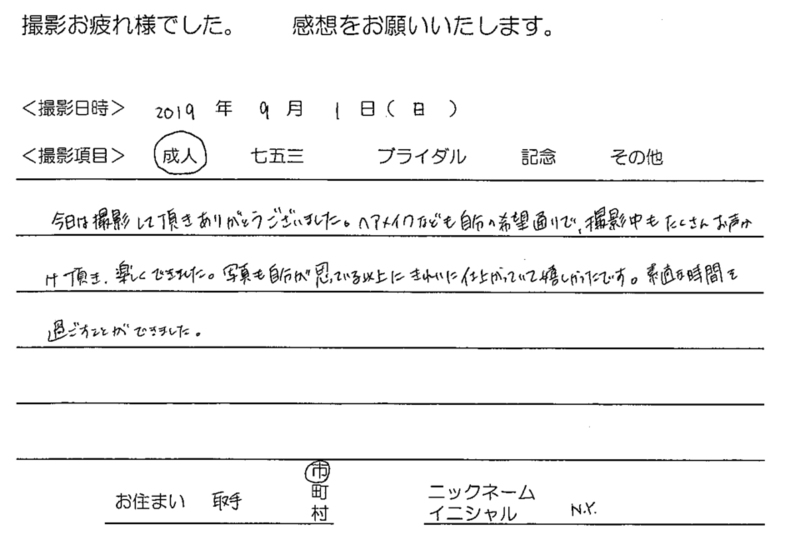 撮影お疲れ様でした。 感想をお願いいたします。
＜撮影日時＞ 2019 年 9 月 1 日（日）
＜撮影項目＞ 成人 七五三 ブライダル 記念 その他
今日は撮影して頂きありがとうございました。ヘアメイクなども自分の希望通りで、撮影中もたくさんお声か
け頂き、楽しくできました。写真も自分が思っている以上にきれいに仕上がっていて嬉しかったです。素適な時間を
過ごすことができました。
お住まい 取手 市 町 村 ニックネーム イニシャル N.Y.